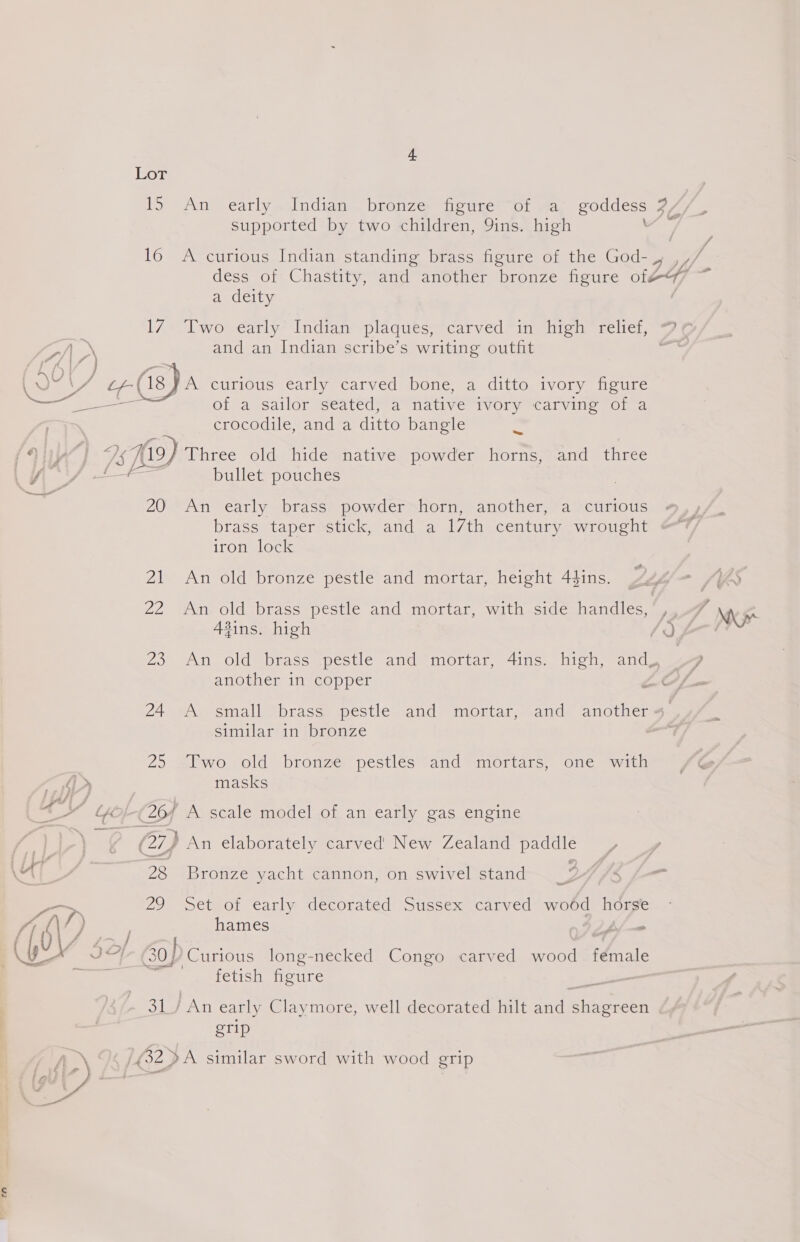 4
Lot
15 An early Indian bronze figure of a goddess
supported by two children, 9ins. high
16 A curious Indian standing brass figure of the God-
dess of Chastity, and another bronze figure of
a deity
17 Two early Indian plaques, carved in high relief,
and an Indian scribe's writing outfit
18 A curious early carved bone, a ditto ivory figure
of a sailor seated, a native ivory carving of a
crocodile, and a ditto bangle
19 Three old hide native powder horns, and three
bullet pouches
20 An early brass powder horn, another, a curious
brass taper stick, and a 17th century wrought
iron lock
21 An old bronze pestle and mortar, height 4½ins.
22 An old brass pestle and mortar, with side handles,
4¾ins. high
23 An old brass pestle and mortar, 4ins. high, and
another in copper
24 A small brass pestle and mortar, and another
similar in bronze
25 Two old bronze pestles and mortars, one with
masks
26 A scale model of an early gas engine
27 An elaborately carved New Zealand paddle
28 Bronze yacht cannon, on swivel stand
29 Set of early decorated Sussex carved wood horse
hames
30 Curious long-necked Congo carved wood female
fetish figure
31 An early Claymore, well decorated hilt and shagreen
grip
32 A similar sword with wood grip